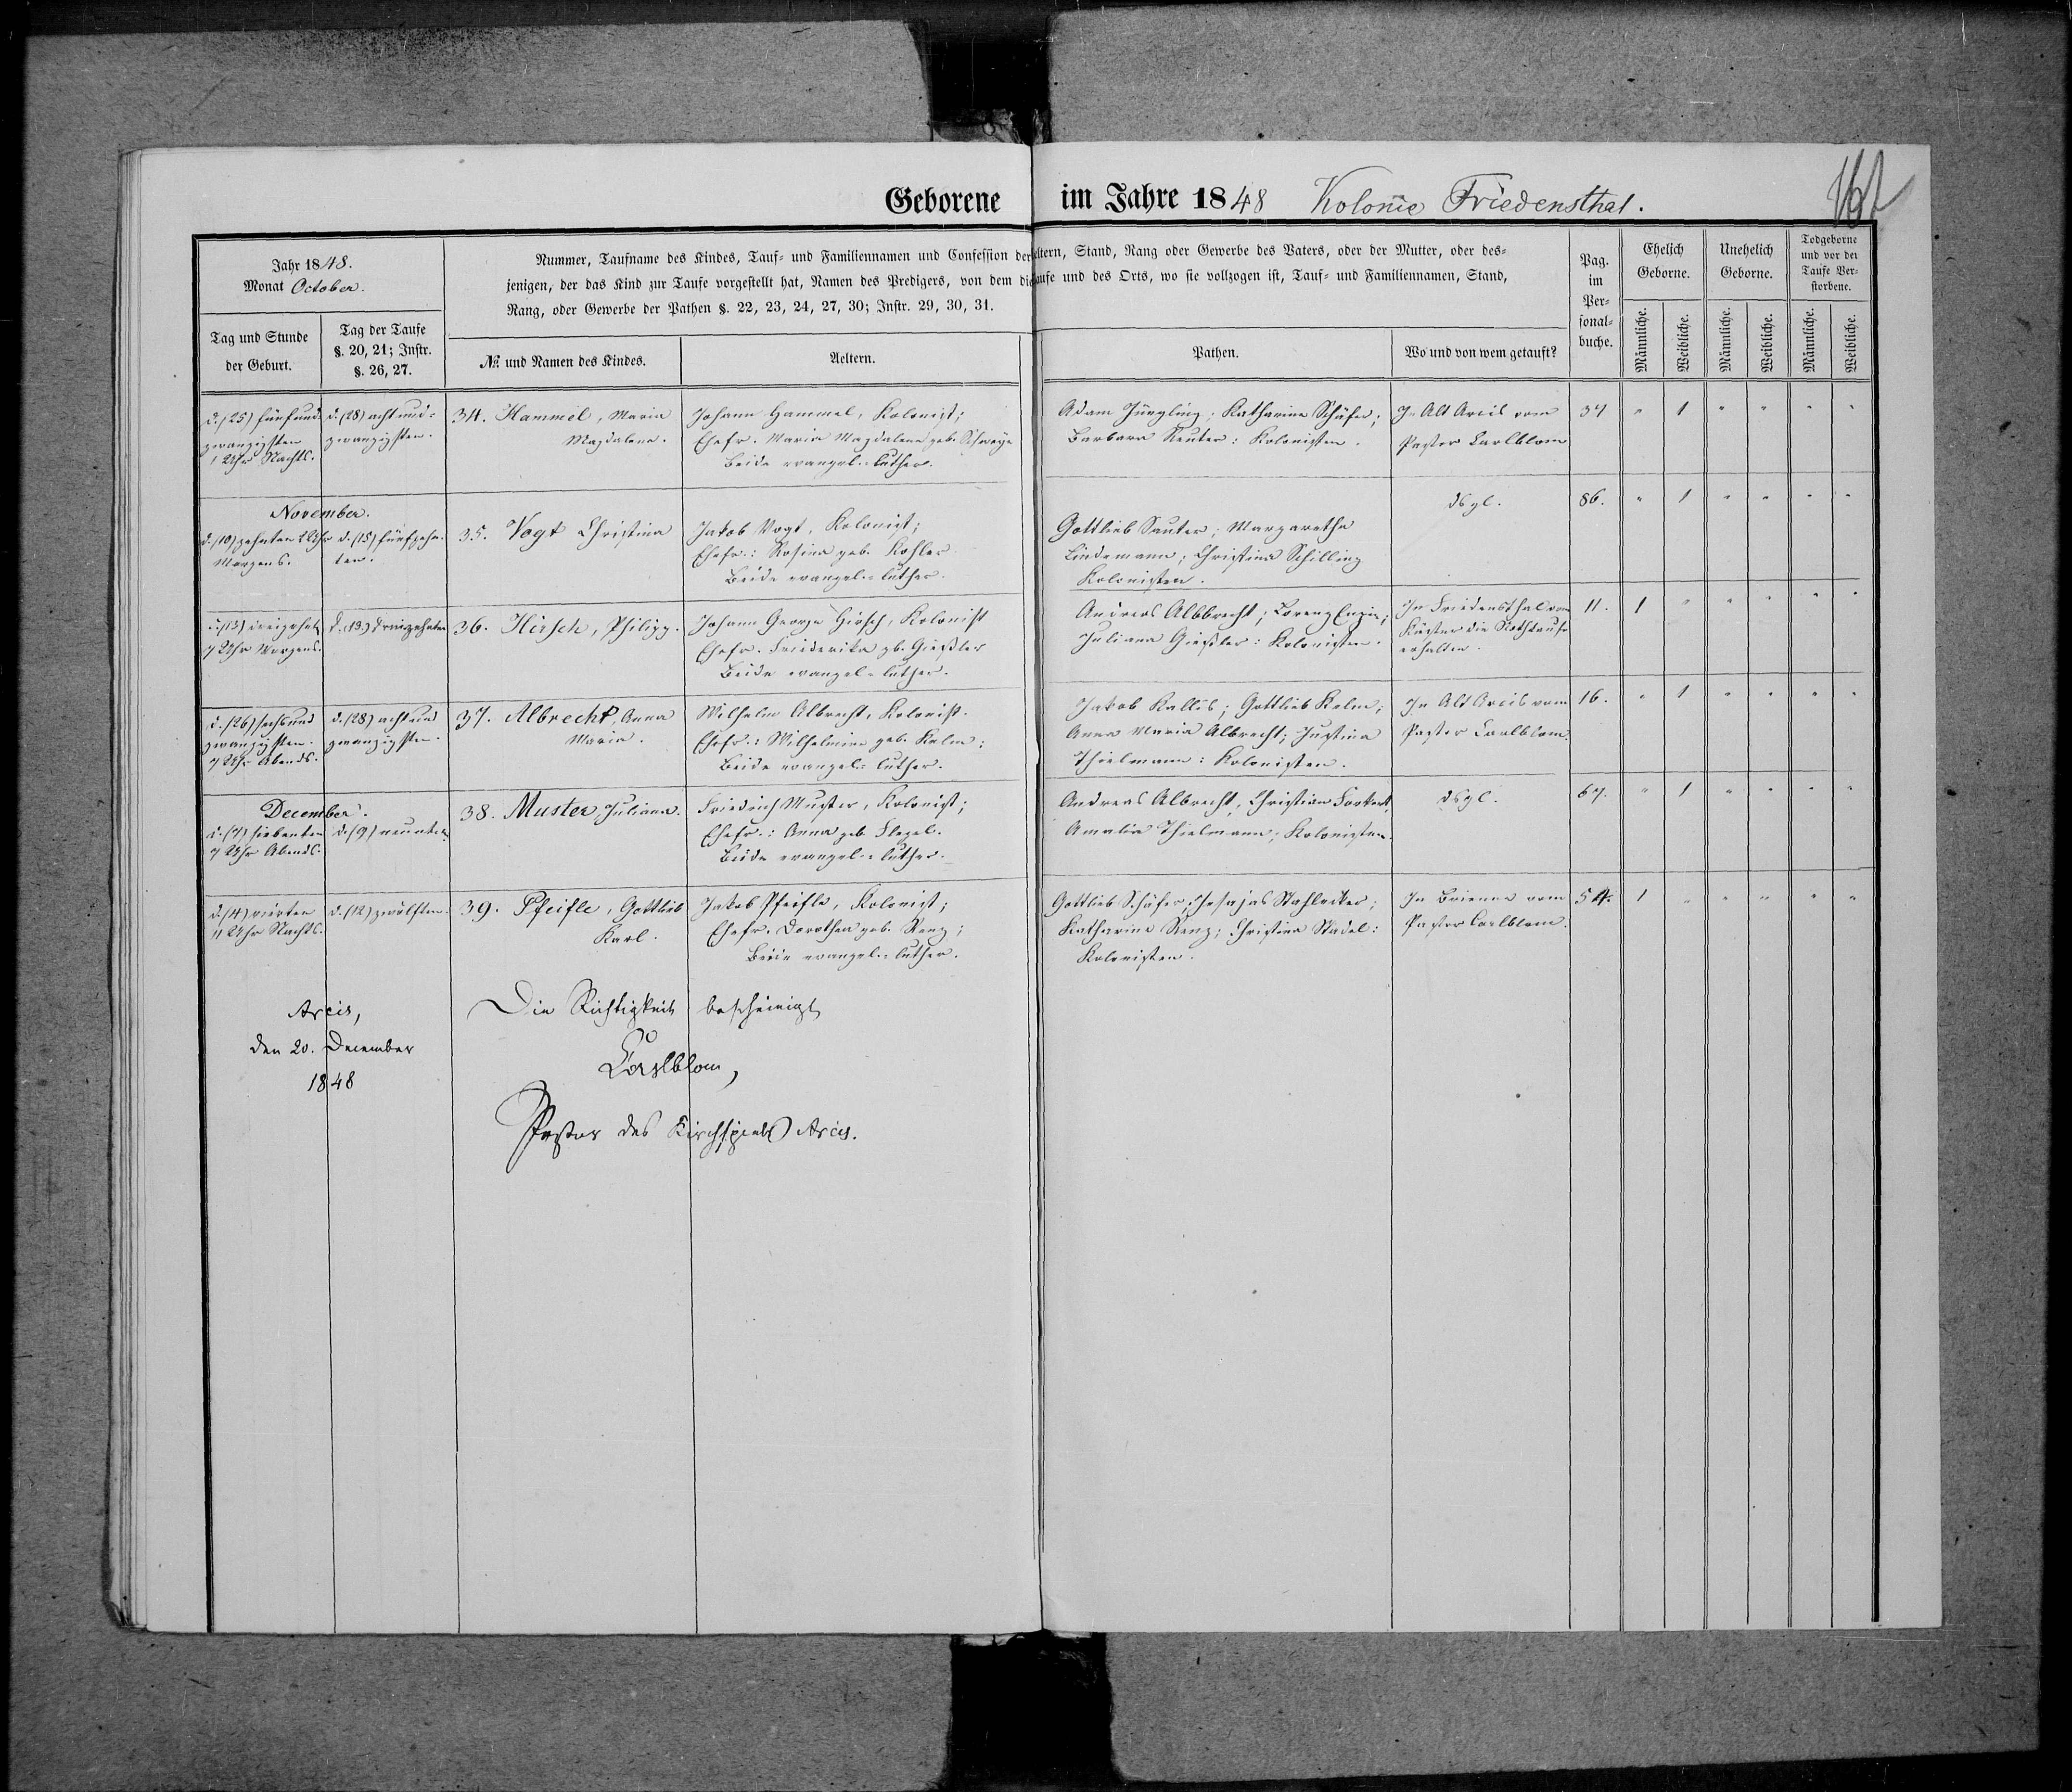 Geborene im Jahre 1848 Kolonie Friedensthal.
Jahr 1848.
Monat October.
Nummer, Taufname des Kindes, Tauf- und Familiennamen und Confession der Aeltern, Stand, Rang oder Gewerbe des Vaters, oder der Mutter, oder des-
jenigen, der das Kind zur Taufe vorgestellt hat, Namen des Predigers, von dem die Taufe und des Orts, wo sie vollzogen ist, Tauf- und Familiennamen, Stand,
Rang, oder Gewerbe der Pathen §. 22, 23, 24, 27, 30; Instr. 29, 30, 31.
Pag.
im
Per-
sonal-
buche.
Ehelich
Geborne.
Unehelich
Geborne.
Todgeborne
und vor der
Taufe Ver-
storbene.
Tag und Stunde
der Geburt.
Tag der Taufe
§. 20, 21; Instr.
§. 26, 27.
№. und Namen des Kindes.
Aeltern.
Pathen.
Wo und von wem getauft?
Männliche.
Weibliche.
Männliche.
Weibliche.
Männliche.
Weibliche.
d. (25) fünfund
zwanzigsten
1 Uhr Nachts.
d. (28) acht und-
zwanzigsten.
34. Hammel, Maria
Magdalena.
Johann Hammel, Kolonist;
Ehefr. Maria Magdalena geb.
Beide evangel.-luther.
Adam Jüngling; Katharina Schäfer;
Barbara Reuter: Kolonisten.
In Alt Arcis vom
Pastor Carlblom
37 " 1 " " " "
November.
d. (10) zehnten 2 Uhr
Morgens.
d. (15) fünfzehn-
ten.
35. Vogt Christina
Jakob Vogt, Kolonist;
Ehefr.: Rosina geb. Kohler
Beide evangel.-luther.
Gottlieb Sauter; Margaretha
Lindemann; Christina Schilling
Kolonisten.
dsgl.
86. " 1 " " " "
d. (13) dreizehnt
7 Uhr Morgens.
d. (13.) dreizehnten
36. Hirsch, Philipp.
Johann George Hirsch, Kolonist
Ehefr. Friederika gb. Gießler
Beide evangel-luther.
Andreas Albbrecht; Lorenz Enzie;
Juliana Gießler: Kolonisten.
In Friedensthal vom
Küster die Nothtaufe
erhalten.
11. 1 " " " " "
d. (26) sechsund
zwanzigsten.
7 Uhr Abends.
d. (28) acht und
zwanzigsten.
37. Albrecht, Anna
Maria.
Wilhelm Albrecht, Kolonist.
Ehefr.: Wilhelmine geb. Kelm;
Beide evangel-luther.
Jakob Kallis; Gottlieb Kelm;
Anna Maria Albrecht; Justina
Thielmann: Kolonisten.
In Alt Arcis vom
Pastor Carlblom.
16. " 1 " " " "
December.
d. (7) siebenten
7 Uhr Abends.
d. (9) neunten
38. Muster, Juliana.
Friedrich Muster, Kolonist;
Ehefr.: Anna geb. Flegel.
Beide evangel.-luther.
Andreas Albrecht, Christian
Amalia Thielmann; Kolonisten.
dsgl.
67. " 1 " " " "
d. (4) vierten
11 Uhr Nachts.
d. (12) zwölften.
39. Pfeifle, Gottlieb
Karl.
Jakob Pfeifle, Kolonist;
Ehefr. Dorothea geb. Renz;
Beide evangel.-luther.
Gottlieb Schäfer; Jesajas Stahlecker;
Katharina Renz; Christina Stadel:
Kolonisten.
In Brienne vom
Pastor Carlblom.
54. 1 " " " " "
Arcis,
den 20. December
1848
Die Richtigkeit bescheinigt
Carlblom,
Pastor des Kirchspiels Arcis.